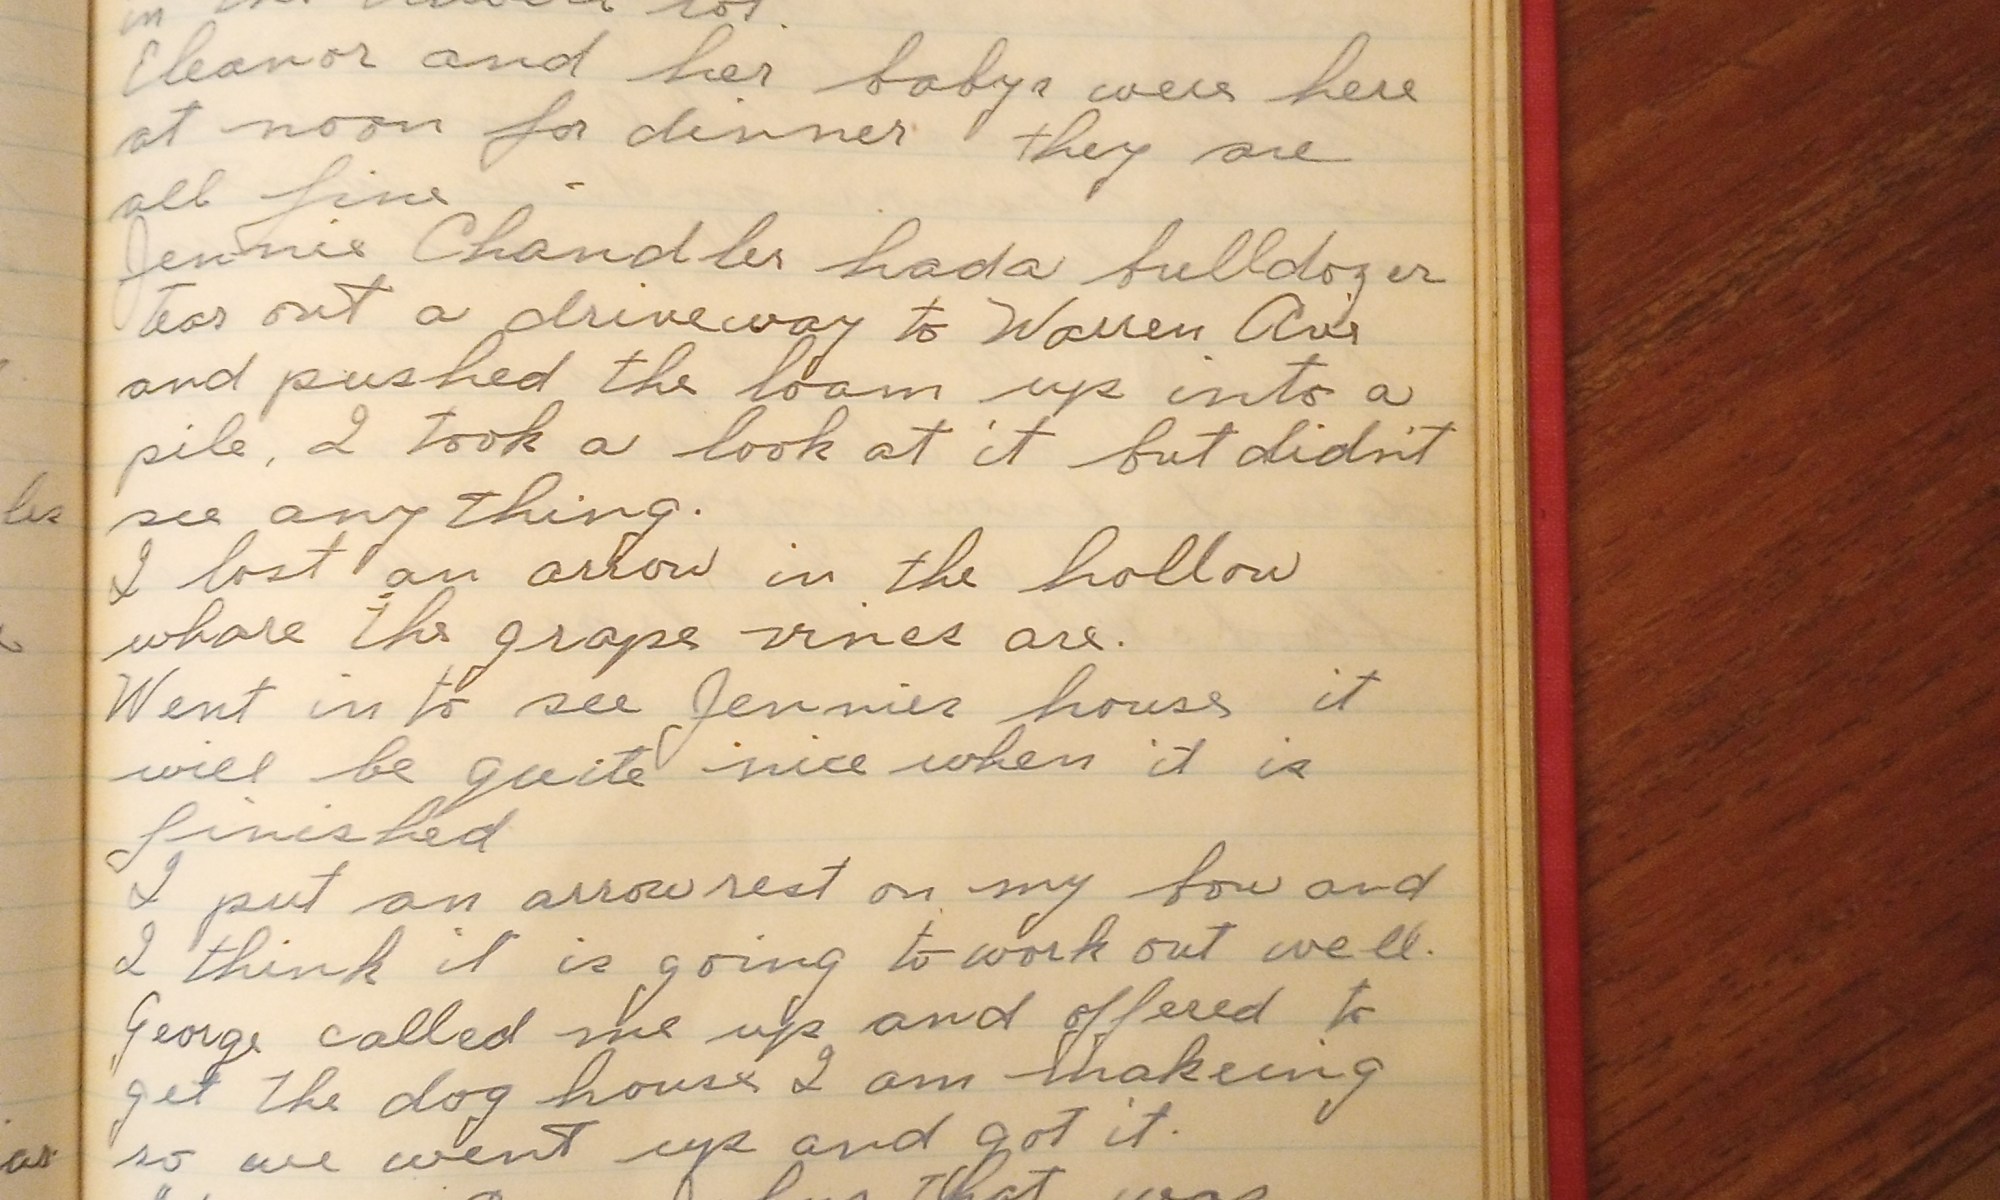 in the
Eleanor and her babys were here
at noon for dinner they are
all fine
Jennie Chandler had a bulldozer
tear out a driveway to Warren Ave
and pushed the loam up into a
pile, I took a look at it but didn't
see any thing.
I lost an arrow in the hollow
whare the grape vines are.
Went in to see Jennies house it
will be quite nice when it is
finished
I put an arrow rest on my bow and
I think it is going to work out well.
George called me up and offered to
get the dog house I am makeing
so we went up and got it.
that was